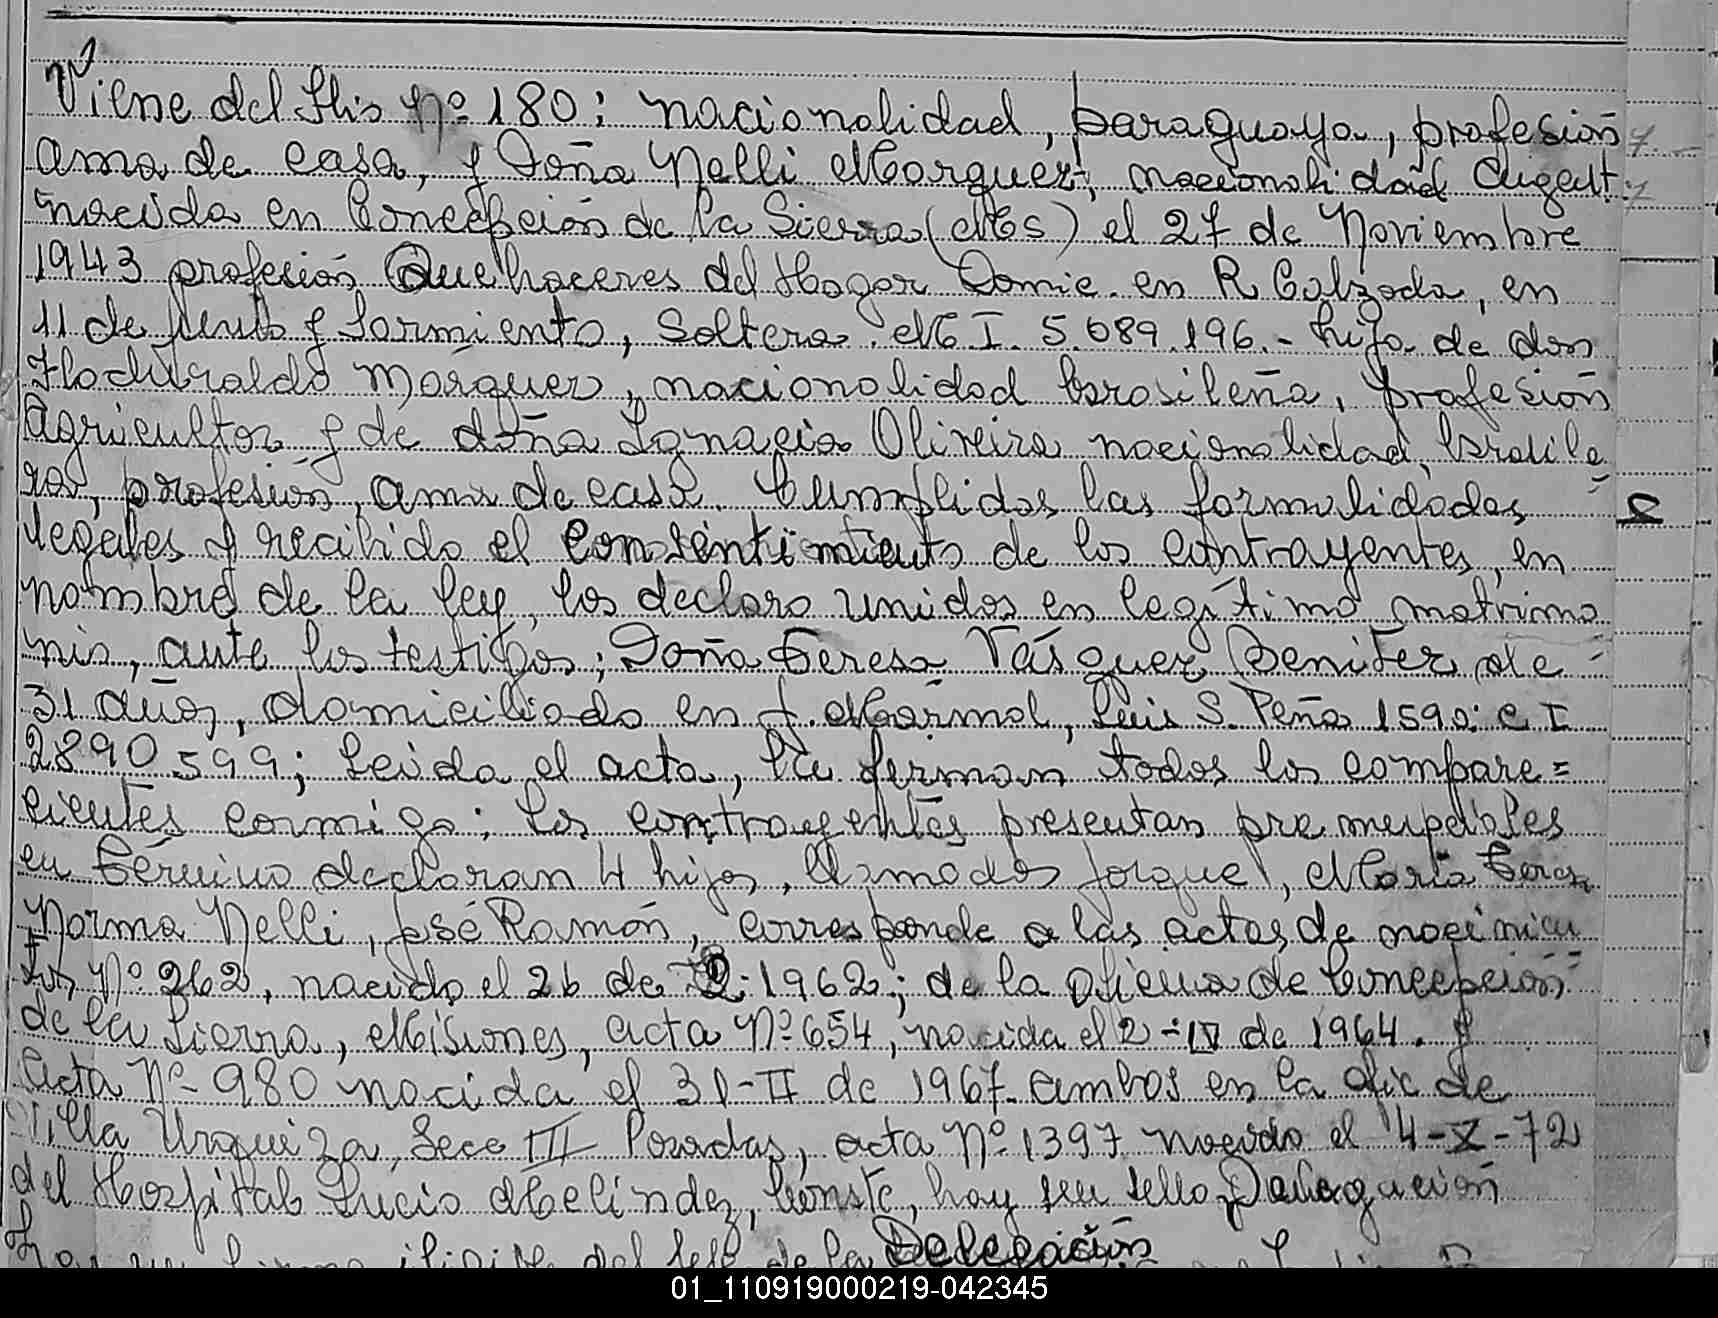 Viene del flio Nº 180; nacionalidad, paraguaya, profesión
ama de casa, y Doña Nelli Marquez, nacionalidad Argent.
nacida en Concepción de la Sierra (Mes) el 27 de Noviembre
1943 profesión Quehaceres del Hogar Domic. en R Calzada, en
11 de y Sarmiento, Soltera. M I. 5.089.196.- hija de don
Marquez, nacionalidad brasileña, profesión
Agricultor y de doña Ignacia Oliveira nacionalidad, brasile
ra, profesión, ama de casa. Cumplidas las formalidades
legales y recibido el consentimiento de los contrayentes, en
nombre de la ley, los declaro unidos en legítimo matrimo
nio, ante los testigos; Doña Teresa Vásquez Benitez de
31 años, domiciliado en J. Mármol, Luis S. Peña 1590; C I
2890.599; Leida el acta, la firman todos los compare=
cientes conmigo; Los contrayentes presentan pre
en término declaran 4 hijos, Jorge, Maria Teres
Norma Nelli, José Ramón, corresponde a las actas de nacimien
tos Nº 262, nacido el 26 de 2-1962; de la oficina de Concepción
de la Sierra, Misiones, acta Nº 654, nacida el 2-IV de 1964. y
acta Nº 980 nacida el 31-II de 1967. ambos en la ofic de
Villa Urquiza, Secc III Posadas, acta Nº 1397 nacido el 4-X-72
del Hospital Lucio Melendez, Conste, hay un sello
del de la Delegación
01_110919000219-042345